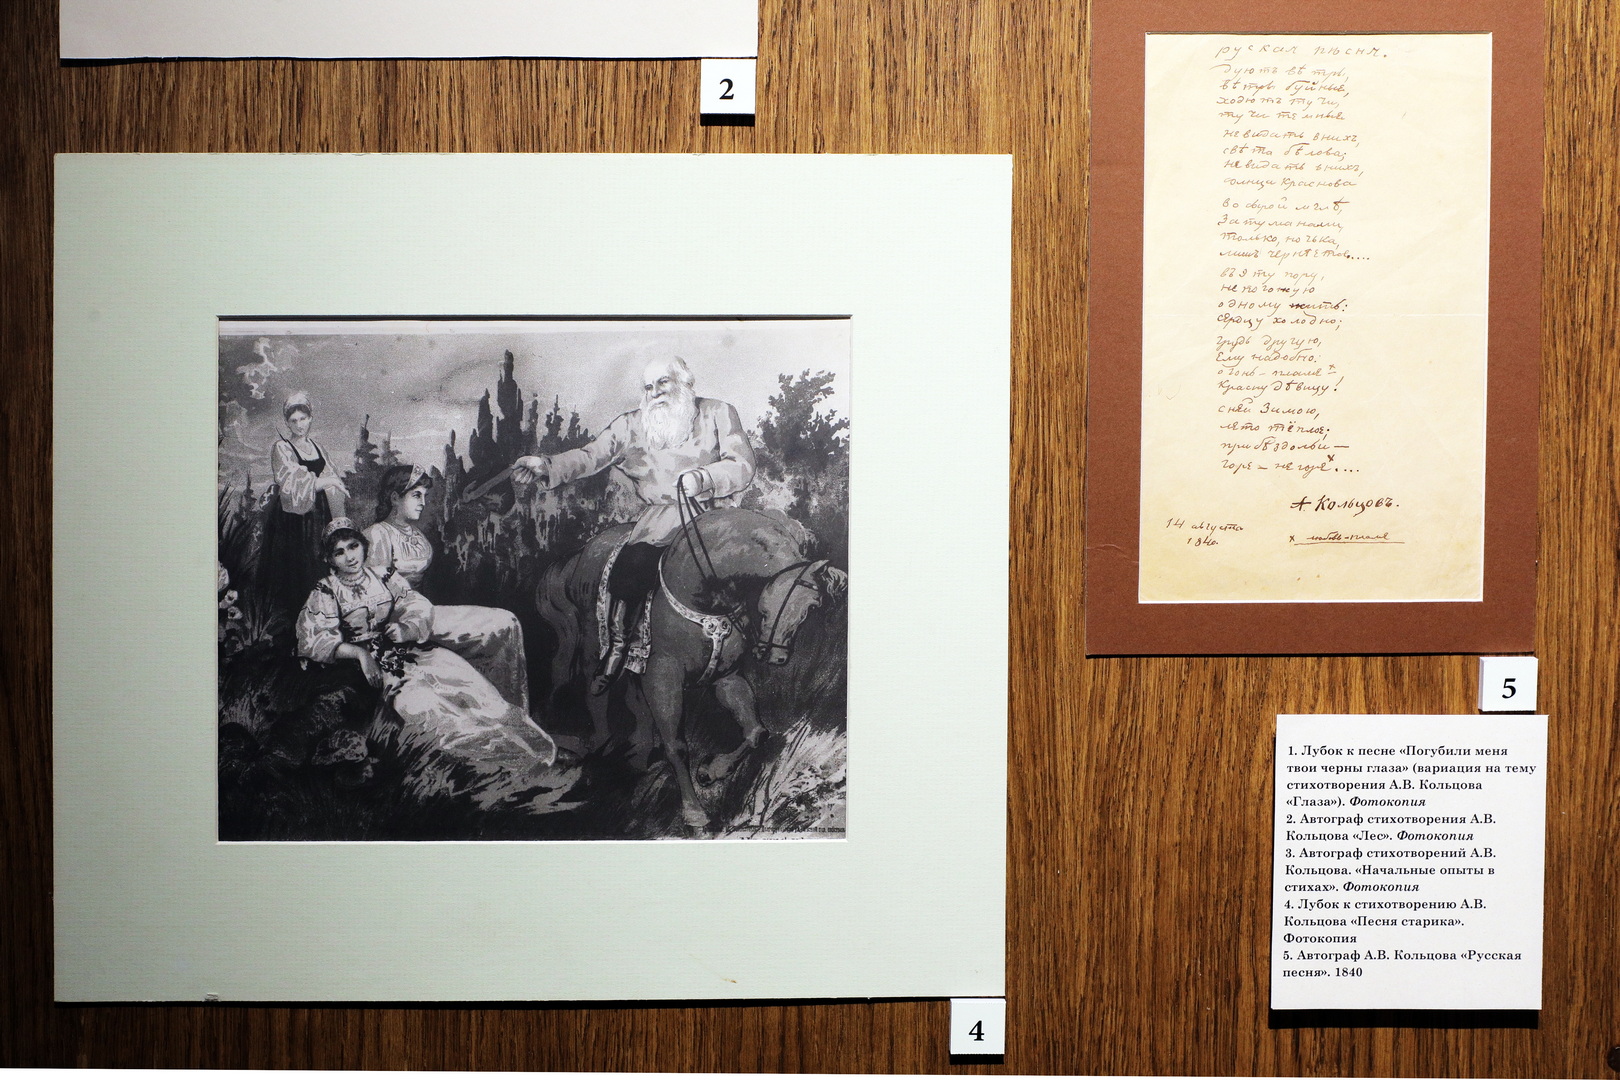 2
руская пѣсня.
Дуютъ вѣтры,
вѣтры буйные,
ходютъ тучи,
тучи темные
не видать в нихъ,
свѣта бѣлова;
не видать в нихъ,
солнца Краснова
во сырой мглѣ,
За туманами,
только, ночька,
лишь чернѣетса....
въ эту пору,
не погожую
одному жить:
сердцу холодно;
грудь другую,
Ему надобно:
огонь - пламе х,
Красну дѣвицу!
с ней Зимою,
лето тёплое;
при бѣздольи —
горе - не горе х....
А Кольцовъ.
14 августа
1840.
х
5
1. Лубок к песне «Погубили меня
твои черны глаза» (вариация на тему
стихотворения А.В. Кольцова
«Глаза»). Фотокопия
2. Автограф стихотворения А.В.
Кольцова «Лес». Фотокопия
3. Автограф стихотворений А.В.
Кольцова. «Начальные опыты в
стихах». Фотокопия
4. Лубок к стихотворению А.В.
Кольцова «Песня старика».
Фотокопия
5. Автограф А.В. Кольцова «Русская
песня». 1840
4